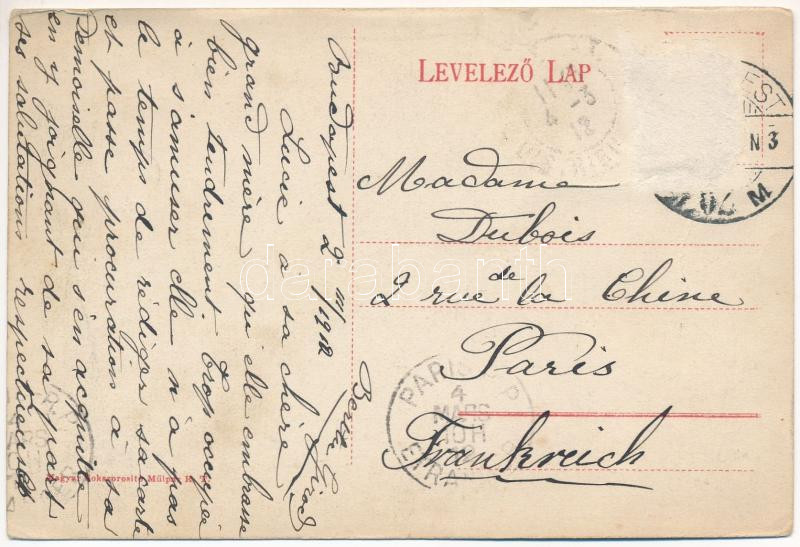 LEVELEZŐ LAP
Madame
Dubois
2 rue de la Chine
Paris
Frankreich
Budapest 2 III/1912
Lucie à sa chère
grand'mère qu'elle embrasse
bien tendrement. Trop occupée
à s'amuser elle n'a pas
le temps de rédiger sa carte
et passe procuration à sa
Demoiselle qui s'en acquitte
en y joignant de sa part
ses salutations respectueuses
Berthe
PARIS
4
MARS
ETRANGER
EST
N3
M
darabanth